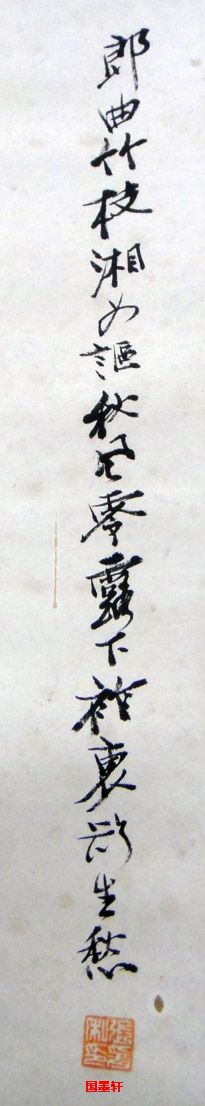 郎曲竹枝湘女謳秋風零露下裏欲生愁
国墨轩